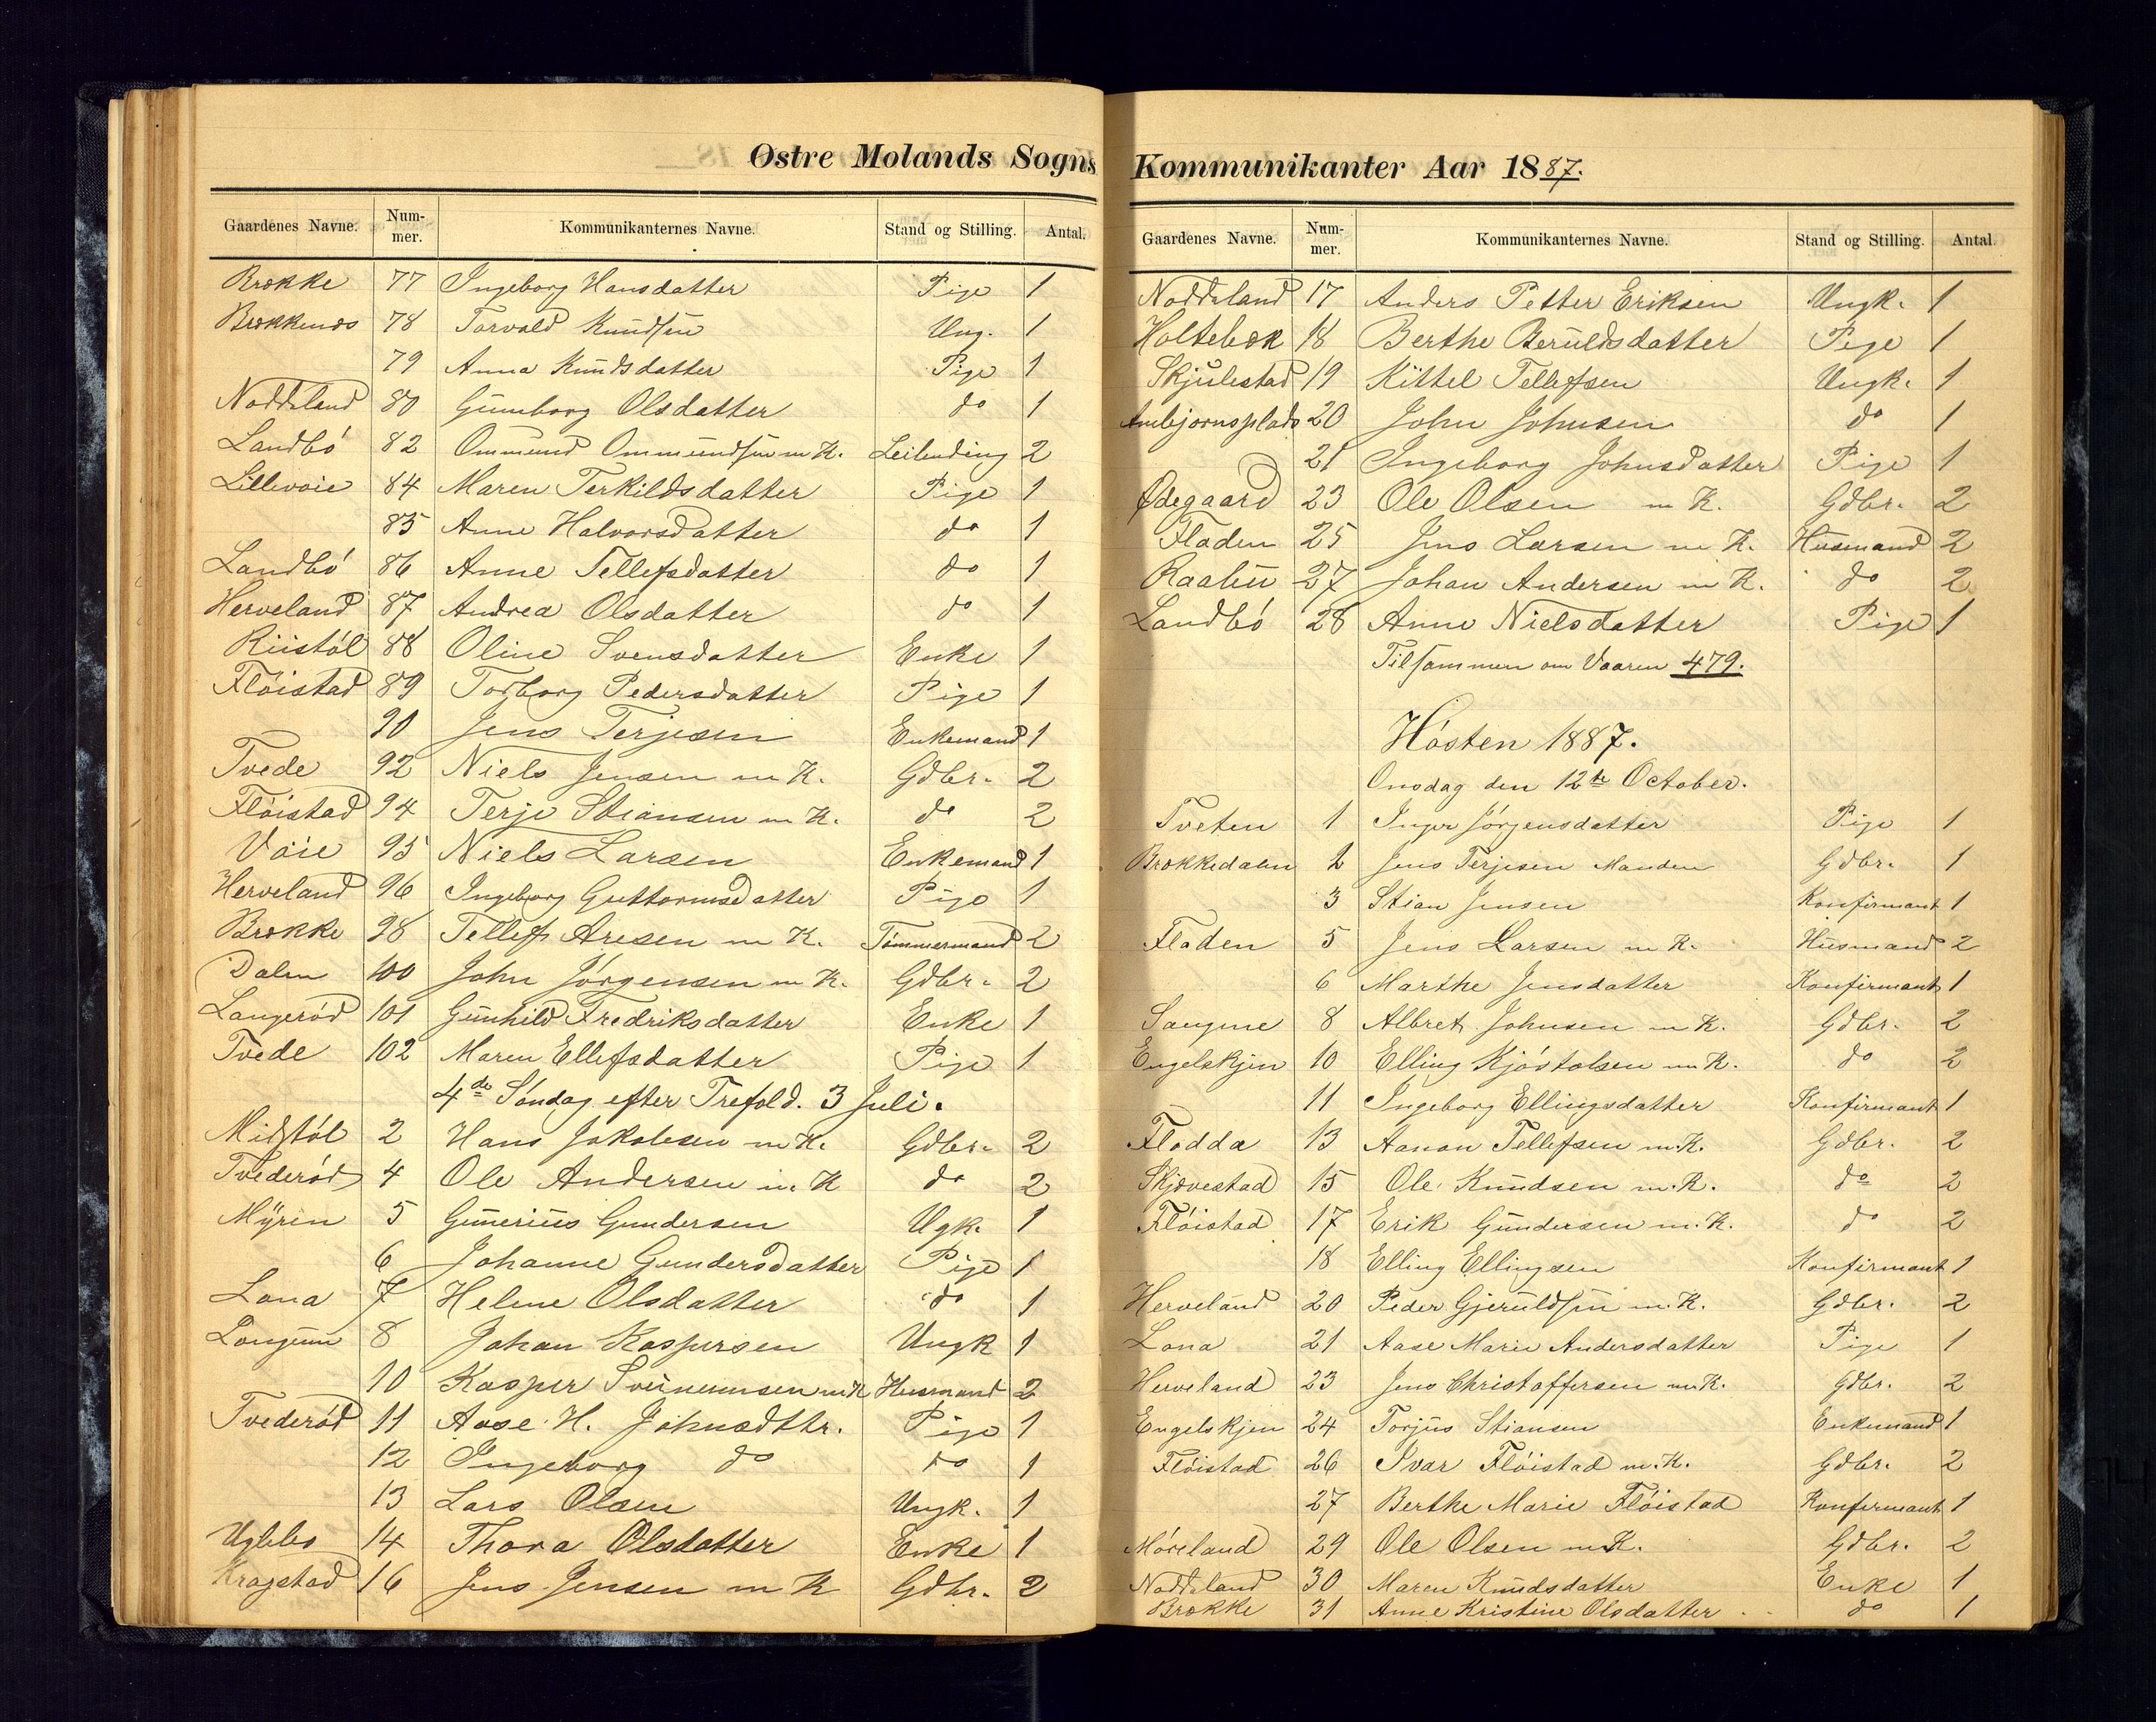 Østre Molands Sogns
Gaardenes Navne. Num-mer. Kommunikanternes Navne. Stand og Stilling. Antal.
Brække 77 Ingeborg Hansdatter Pige 1
Brækkenæs 78 Torvald Knudsen Ung. 1
79 Anna Knudsdatter Pige 1
Noddeland 80 Gunnborg Olsdatter do 1
Landbó 82 Ommund Ommundsen m K. Leilending 2
Lillevoie 84 Maren Terkildsdatter Pige 1
85 Anne Halvorsdatter do 1
Landbó 86 Anne Tellefsdatter do 1
Herveland 87 Andrea Olsdatter do 1
Riistól 88 Oline Svensdatter Enke 1
Flóistad 89 Torborg Pedersdatter Pige 1
90 Jens Terjesen Enkemand 1
Tvede 92 Niels Jensen m K. Gdbr. 2
Flóistad 94 Terje Stiansen m K. do 2
Voie 95 Niels Larsen Enkemand 1
Herveland 96 Ingeborg Guttormsdatter Pige 1
Brække 98 Tellef Aresen m K. Tómmermand 2
Dalen 100 John Jórgensen m K. Gdbr. 2
Langeród 101 Gunhild Fredriksdatter Enke 1
Tvede 102 Maren Ellefsdatter Pige 1
4de Sóndag efter Trefold. 3 Juli.
Midtstól 2 Hans Jakobsen m K. Gdbr. 2
Tvederód 4 Ole Andersen m. K do 2
Myren 5 Gunerius Gundersen Ugk. 1
6 Johanne Gundersdatter Pige 1
Lona 7 Helene Olsdatter do 1
Longum 8 Johan Kaspersen Ungk 1
10 Kasper Sveinumsen m K Husmand 2
Tvederód 11 Aase H. Johnsdttr. Pige 1
12 Ingeborg do do 1
13 Lars Olsen Ungk. 1
Uglebo 14 Thora Olsdatter Enke 1
Kragstad 16 Jens Jensen m K Gdbr. 2
Kommunikanter Aar 1887.
Gaardenes Navne. Num-mer. Kommunikanternes Navne. Stand og Stilling. Antal.
Noddeland 17 Anders Petter Eriksen Ungk. 1
Holtebæk 18 Berthe Beruldsdatter Pige 1
Skjulestad 19 Kittel Tellefsen Ungk. 1
Ambjornsplads 20 John Johnsen do 1
21 Ingeborg Johnsdatter Pige 1
Ødegaard 23 Ole Olsen m K. Gdbr. 2
Fladen 25 Jens Larsen m K. Husmand 2
27 Johan Andersen m K. do 2
Landbó 28 Anne Nielsdatter Pige 1
Tilsammen om Vaaren 479.
Hósten 1887.
Onsdag den 12te October.
Tveten 1 Inger Jórgensdatter Pige 1
Brækkedalen 2 Jens Terjesen Manden Gdbr. 1
3 Stian Jensen Konfirmant 1
Fladen 5 Jens Larsen m K. Husmand 2
6 Marthe Jensdatter Konfirmant 1
8 Albret Johnsen m K. Gdbr. 2
Engelskjen 10 Elling Kjóstolsen m K. do 2
11 Ingeborg Ellingsdatter Konfirmant 1
Flodda 13 Aanon Tellefsen m.K. Gdbr. 2
Skjævestad 15 Ole Knudsen m.K. do 2
Flóistad 17 Erik Gundersen m.K. do 2
18 Elling Ellingsen Konfirmant 1
Herveland 20 Peder Gjeruldsen m.K. Gdbr. 2
Lona 21 Aase Marie Andersdatter Pige 1
Herveland 23 Jens Christoffersen m.K. Gdbr. 2
Engelskjen 24 Torjus Stiansen Enkemand 1
Flóistad 26 Ivar Flóistad m.K. Gdbr. 2
27 Berthe Marie Flóistad Konfirmant 1
Móreland 29 Ole Olsen m.K. Gdbr. 2
Noddeland 30 Maren Knudsdatter Enke 1
Brække 31 Anne Kristine Olsdatter do 1